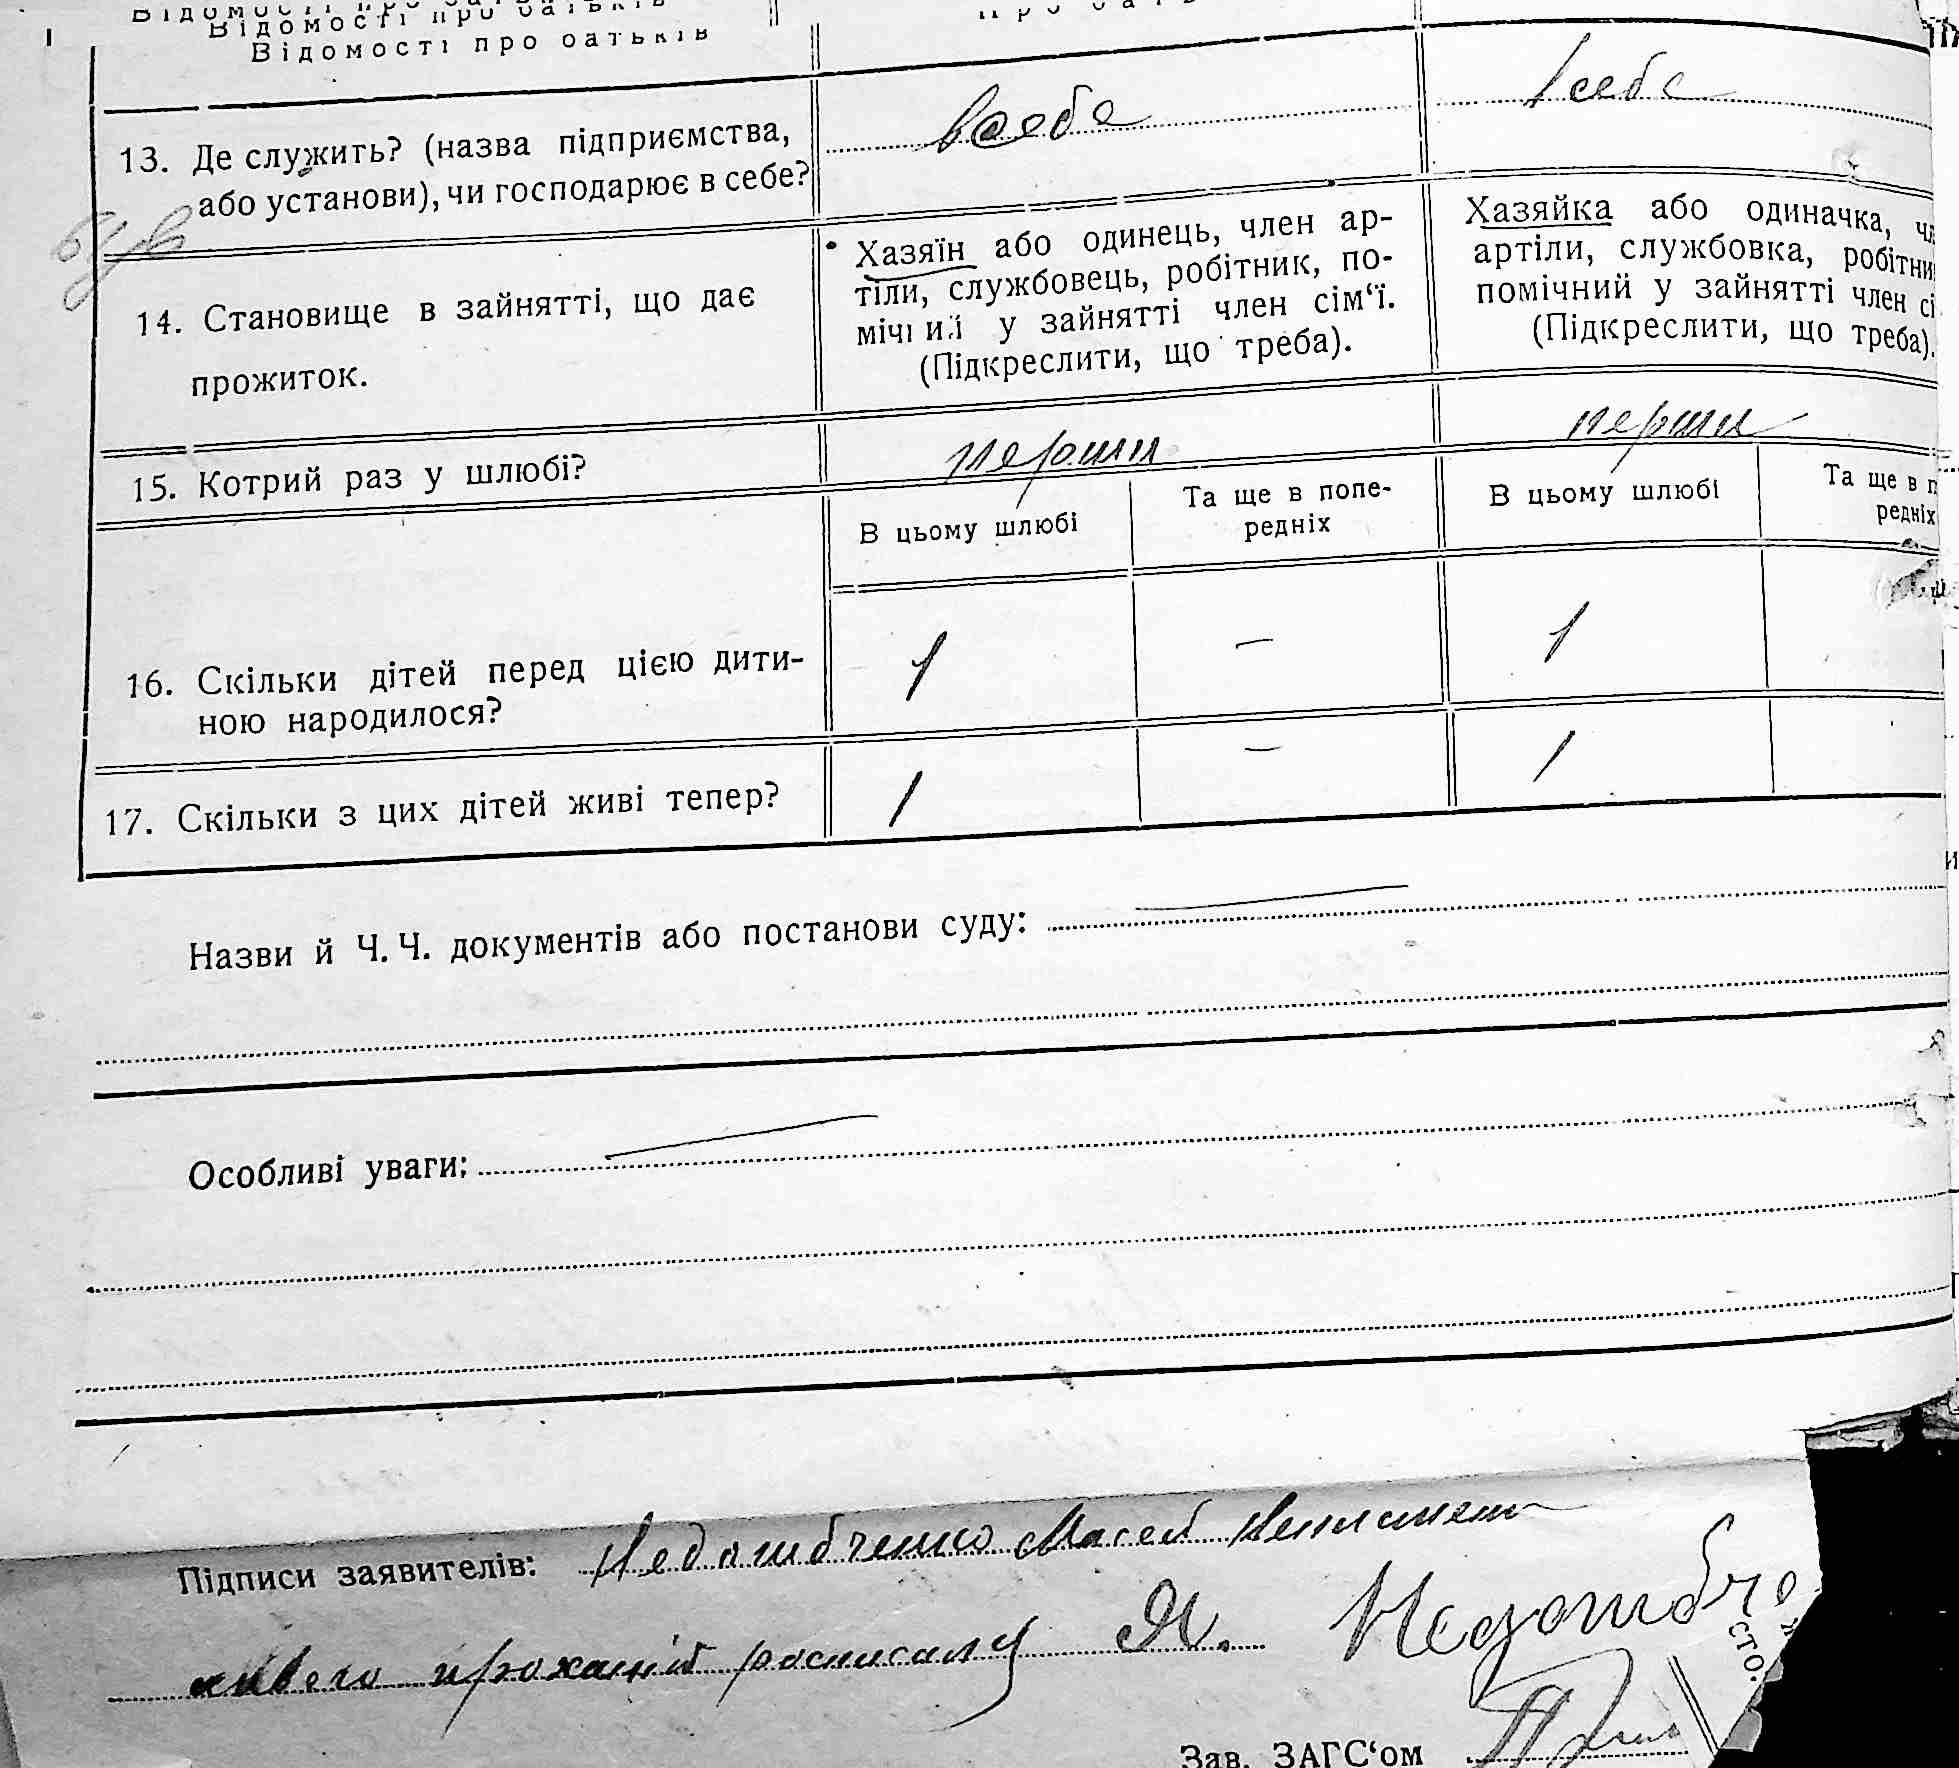 Відомості про батьків
Відомості про батьків
13. Де служить? (назва підприємства,
або установи), чи господарює в себе?
в себе
в себе
14. Становище в зайнятті, що дає
прожиток.
Хазяїн або одинець, член ар-
тіли, службовець, робітник, по-
мічний у зайнятті член сім‘ї.
(Підкреслити, що треба).
Хазяйка або одиначка, чл
артіли, службовка, робітни
помічний у зайнятті член сі
(Підкреслити, що треба).
15. Котрий раз у шлюбі?
перши
перши
В цьому шлюбі
Та ще в попе-
редніх
В цьому шлюбі
Та ще в п
редніх
16. Скільки дітей перед цією дити-
ною народилося?
1 — 1
17. Скільки з цих дітей живі тепер?
1 — 1
Назви й Ч. Ч. документів або постанови суду:
Особливі уваги:
Підписи заявителів: Недошибченко Мосей
росписалу Я. Недошибче
сто.
Зав. ЗАГС‘ом